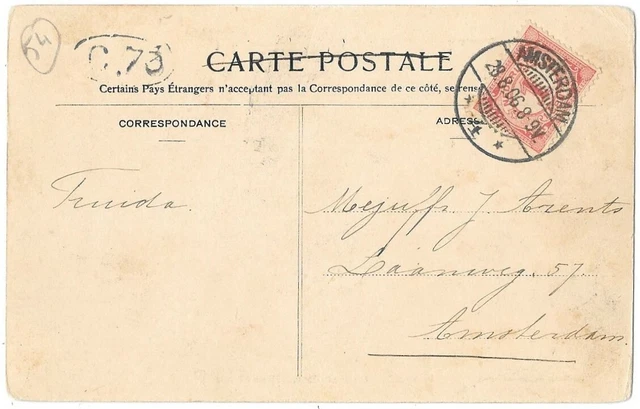 54
C. 73
CARTE POSTALE
Certains Pays Étrangers n'acceptant pas la Correspondance de ce côté, se rense
CORRESPONDANCE
ADRESS
AMSTERDAM
28.8.06.8-9V.
Truida.
Mejuffr. J. Arents
Laanweg. 57.
Amsterdam.